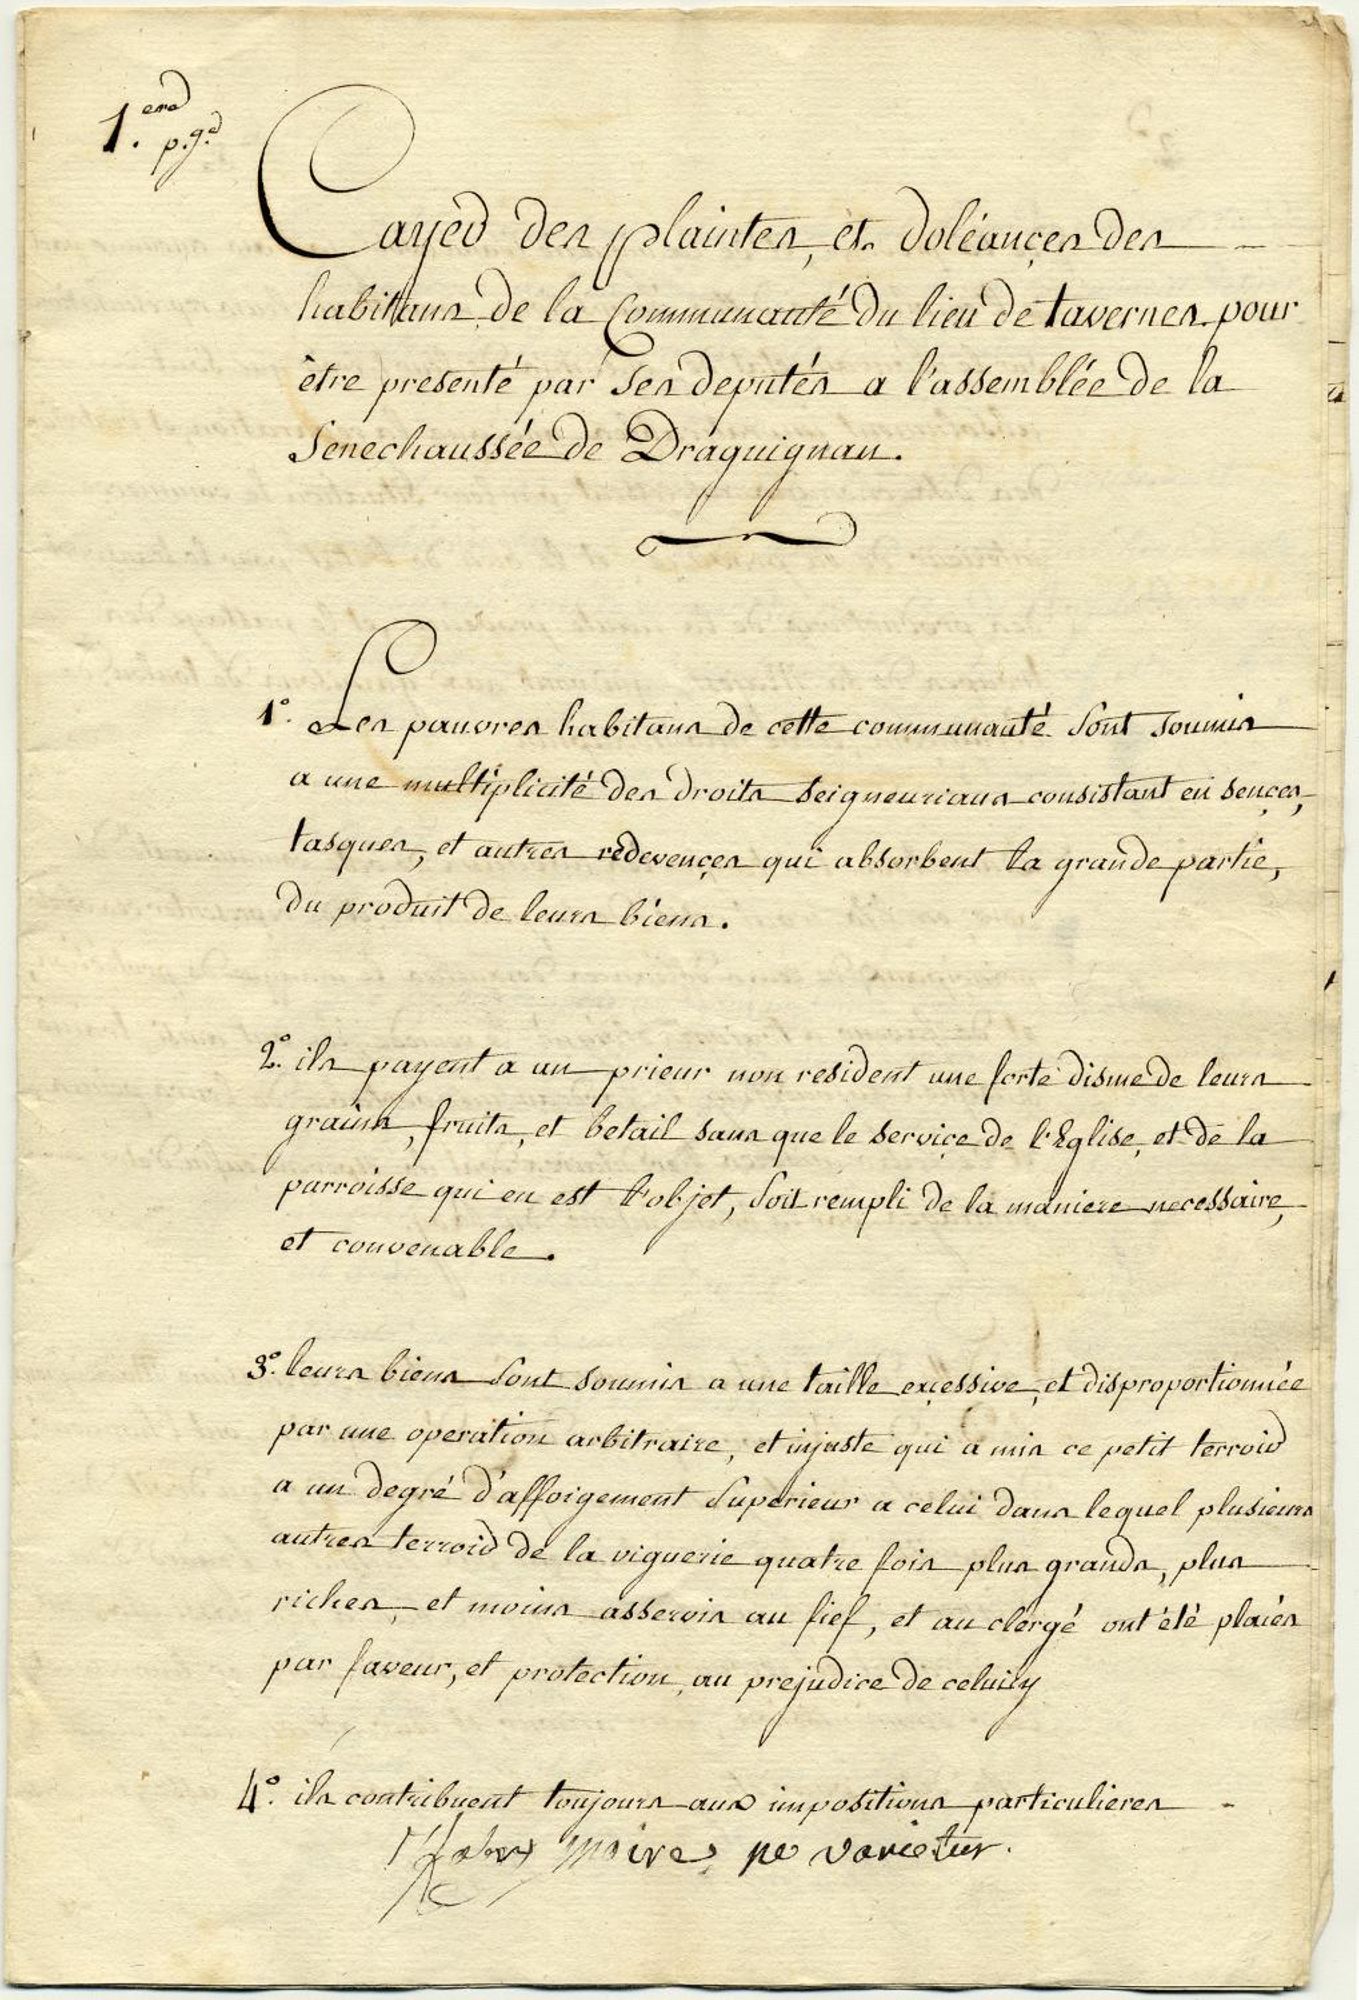 1.ere
p.ge
Cayer des plaintes, et doléançes des
habitans de la Communauté du lieu de tavernes pour
être presenté par ses deputés a l'assemblée de la
Senechaussée de Draguignan.
1°. Les pauvres habitans de cette communauté sont soumis
a une multiplicité des droits seigneuriaux consistant en sençes,
tasques, et autres redevençes qui absorbent la grande partie,
du produit de leurs biens.
2°. ils payent a un prieur non resident une forte disme de leurs
grains, fruits, et betail sans que le serviçe de l'Eglise, et de la
parroisse qui en est l'objet, soit rempli de la maniere necessaire,
et convenable.
3°. leurs biens sont soumis a une taille exçessive, et disproportionnée
par une operation arbitraire, et injuste qui a mis ce petit terroir
a un degré d'afforgement superieur a celui dans lequel plusieurs
autres terroir de la viguerie quatre fois plus grands, plus
riches, et moins asservis au fief, et au clergé ont été plaçés
par faveur, et protection, au prejudice de celuicy
4°. ils contribuent toujours aux impositions particulieres
maire ne varietur.